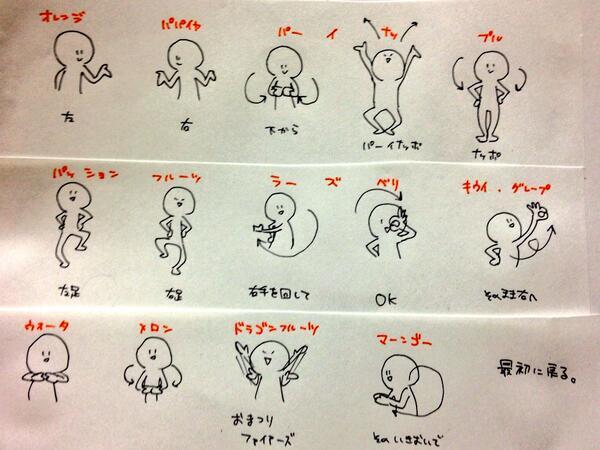 オレンジ
パパイヤ
パー イ
ナッ
プル
左
右
下から
パーイナッポ
ナッポ
パッション
フルーツ
ラー ズ
ベリ
キウイ・グレープ
左足
右足
右手を回して
OK
そのまま右へ
ウォータ
メロン
ドラゴンフルーツ
マーンゴー
最初に戻る。
おまつり
ファイヤーズ
そのいきおいで